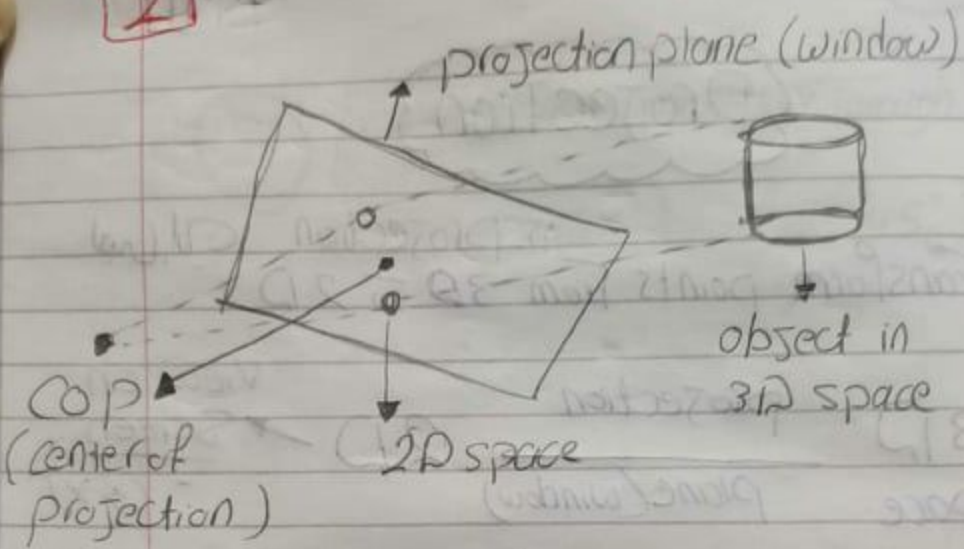 2
projection plane (window)
object in
3D space
COP
(center of
projection)
2D space